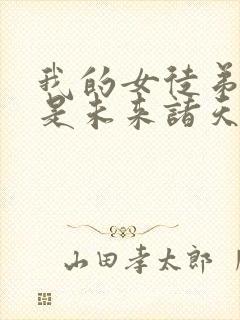 我的女徒弟
是未来諸天
山田孝太郎